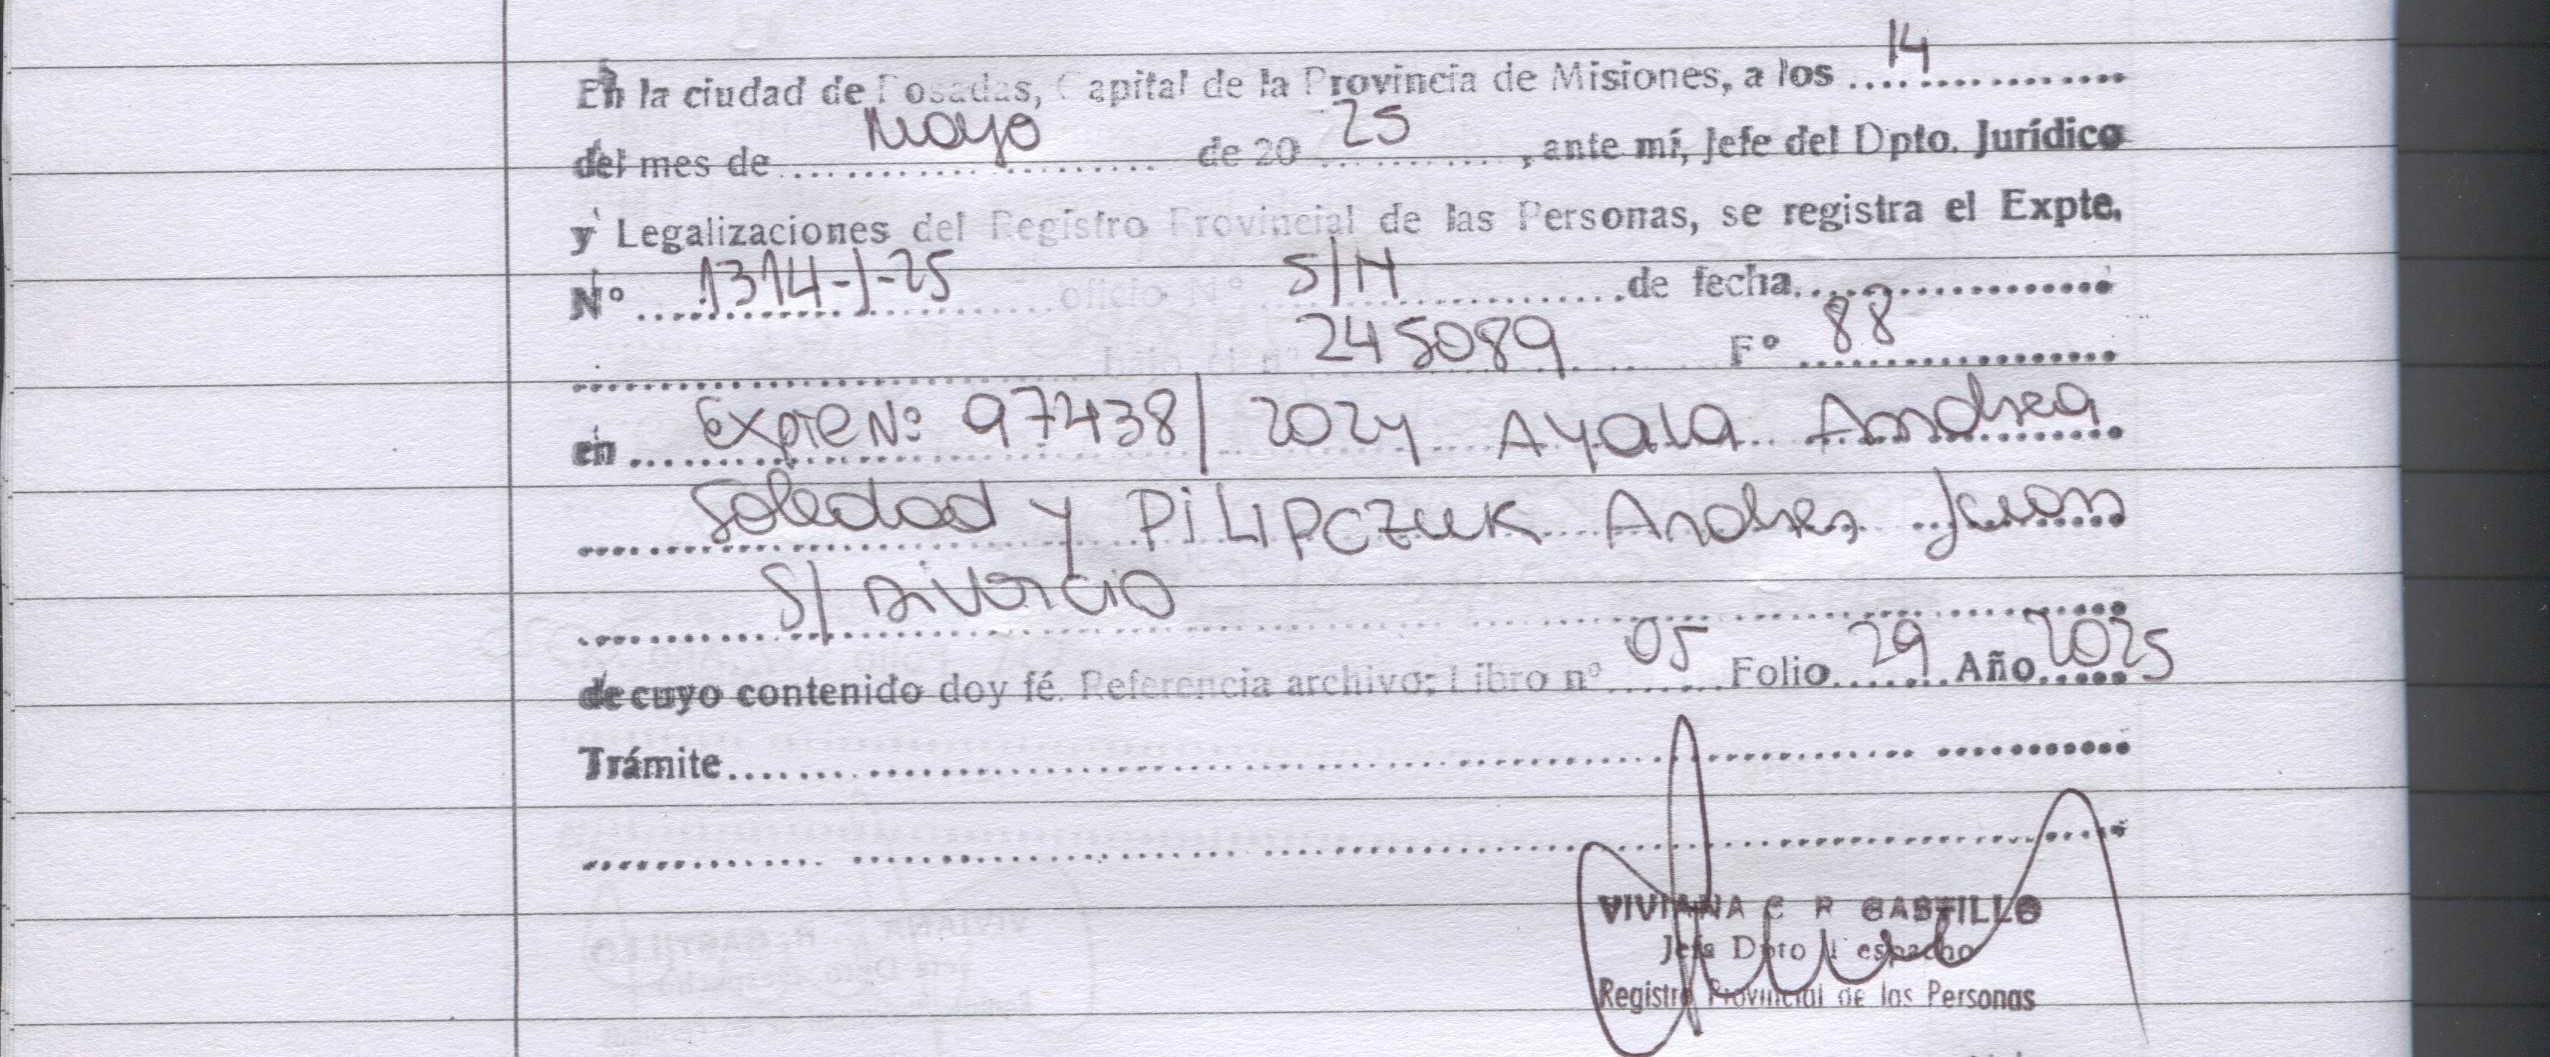 En la ciudad de Posadas, Capital de la Provincia de Misiones, a los .... 14 ....
del mes de .... Mayo .... de 20 25 ...., ante mí, Jefe del Dpto. Jurídico
y Legalizaciones del Registro Provincial de las Personas, se registra el Expte.
Nº .... 1314-J-25 .... oficio Nº .... S/N .... de fecha ....
.... bajo el nº 245089 .... Fº .... 88 ....
en .... Expte Nº 97438/2024 Ayala Andrea
.... Soledad y PILIPCZUK Andres Juan
.... S/ Divorcio ....
de cuyo contenido doy fé. Referencia archivo: Libro nº 05 Folio 29 Año 2025
Trámite ....
VIVIANA C R CASTILLO
Jefa Dpto Despacho
Registro Provincial de las Personas